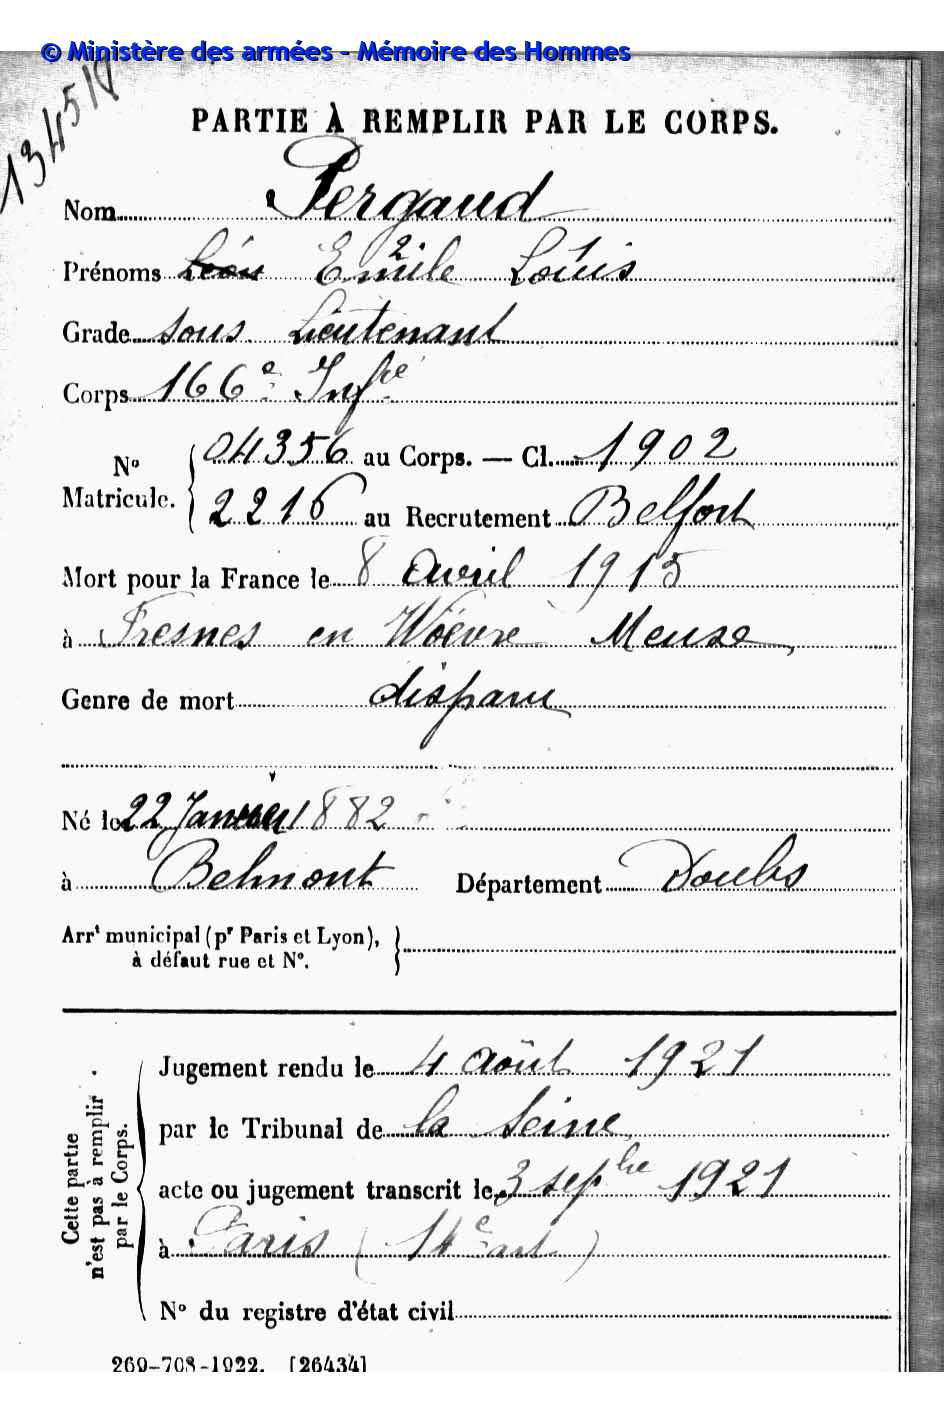 © Ministère des armées - Mémoire des Hommes
134518
PARTIE À REMPLIR PAR LE CORPS.
Nom Pergaud
Prénoms Léon Emile 2 Louis 1
Grade sous Lieutenant
Corps 166e Infie
No Matricule. 04356 au Corps. — Cl. 1902
2216 au Recrutement Belfort
Mort pour la France le 8 avril 1915
à Fresnes en Woëvre Meuse
Genre de mort disparu
Né le 22 Janvier 1882
à Belmont Département Doubs
Arrt municipal (pr Paris et Lyon),
à défaut rue et No.
Cette partie n'est pas à remplir par le Corps.
Jugement rendu le 4 août 1921
par le Tribunal de la Seine
acte ou jugement transcrit le 3 sepbre 1921
à Paris (14e art)
No du registre d'état civil
269-708-1922. [26434]